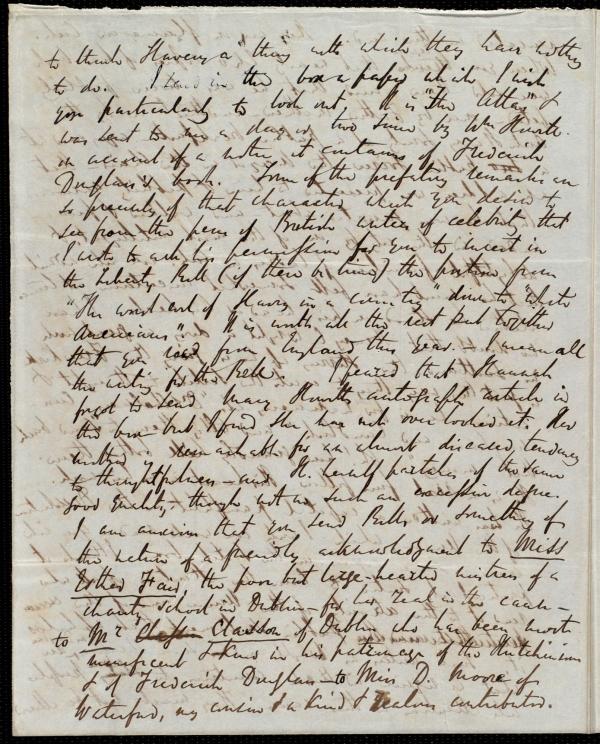 to think Slavery a "thing" with which they have nothing
to do. I send in the box a paper which I wish
you particularly to look out, It is "The Atlas" &
was sent to me a day or two since by Wm Howitt
on account of a notice it contains of Frederick
Douglass's book. Some of the prefatory remarks are
so precisely of that character which you desire to
see from the pens of British writers of celebrity that
I wrote to ask his permission for you to insert in
the Liberty Bell (if there be time) the portion from
"The worst evil of Slavery in a country" down to "white
Americans". It is worth all the rest put together
that you read from England this year – I mean all
the writing for the Bell. I feared that Hannah
forgot to send Mary Howitt's autograph article in
the box but I find she has not overlooked it. Her
mother is remarkable for an almost diseased tendency
to thoughtfulness – and H. herself partakes of the same
good quality, though not in such an excessive degree.
I am anxious that you send Bells or something of
the nature of a friendly acknowledgment to Miss
Esther Fair, the poor but large-hearted mistress of a
charity school in Dublin – for her zeal in the cause –
to Mr Clawson of Dublin who has been most
munificent & kind in his patronage of the Hutchinsons
& of Frederick Douglass – to Miss D. Moore of
Waterford, my cousin & a kind & zealous contributor.